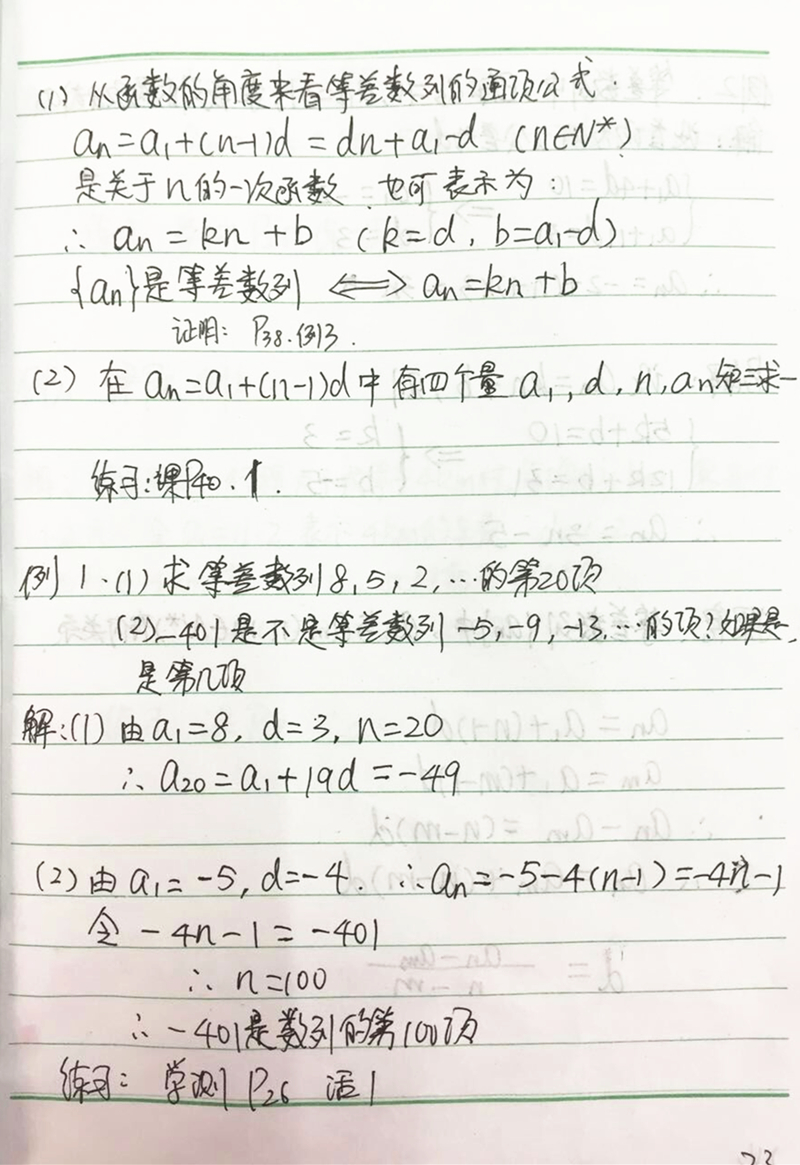 (1) 从函数的角度来看等差数列的通项公式.
an=a1+(n-1)d=dn+a1-d (n∈N*)
是关于n的一次函数 也可表示为:
∴ an=kn+b (k=d, b=a1-d)
{an}是等差数列 ⟺ an=kn+b
证明: P38.例3.
(2) 在 an=a1+(n-1)d中有四个量 a1, d, n, an 知三求一
练习:课P40. 1.
例1.(1) 求等差数列8,5,2,…的第20项
(2) -401是不是等差数列 -5,-9,-13,…的项?如果是,
是第几项
解:(1) 由a1=8, d=3, n=20
∴ a20=a1+19d=-49
(2) 由a1=-5, d=-4. ∴an=-5-4(n-1)=-4n-1
令 -4n-1=-401
∴ n=100
∴ -401是数列的第100项
练习: 学测 P26 活1